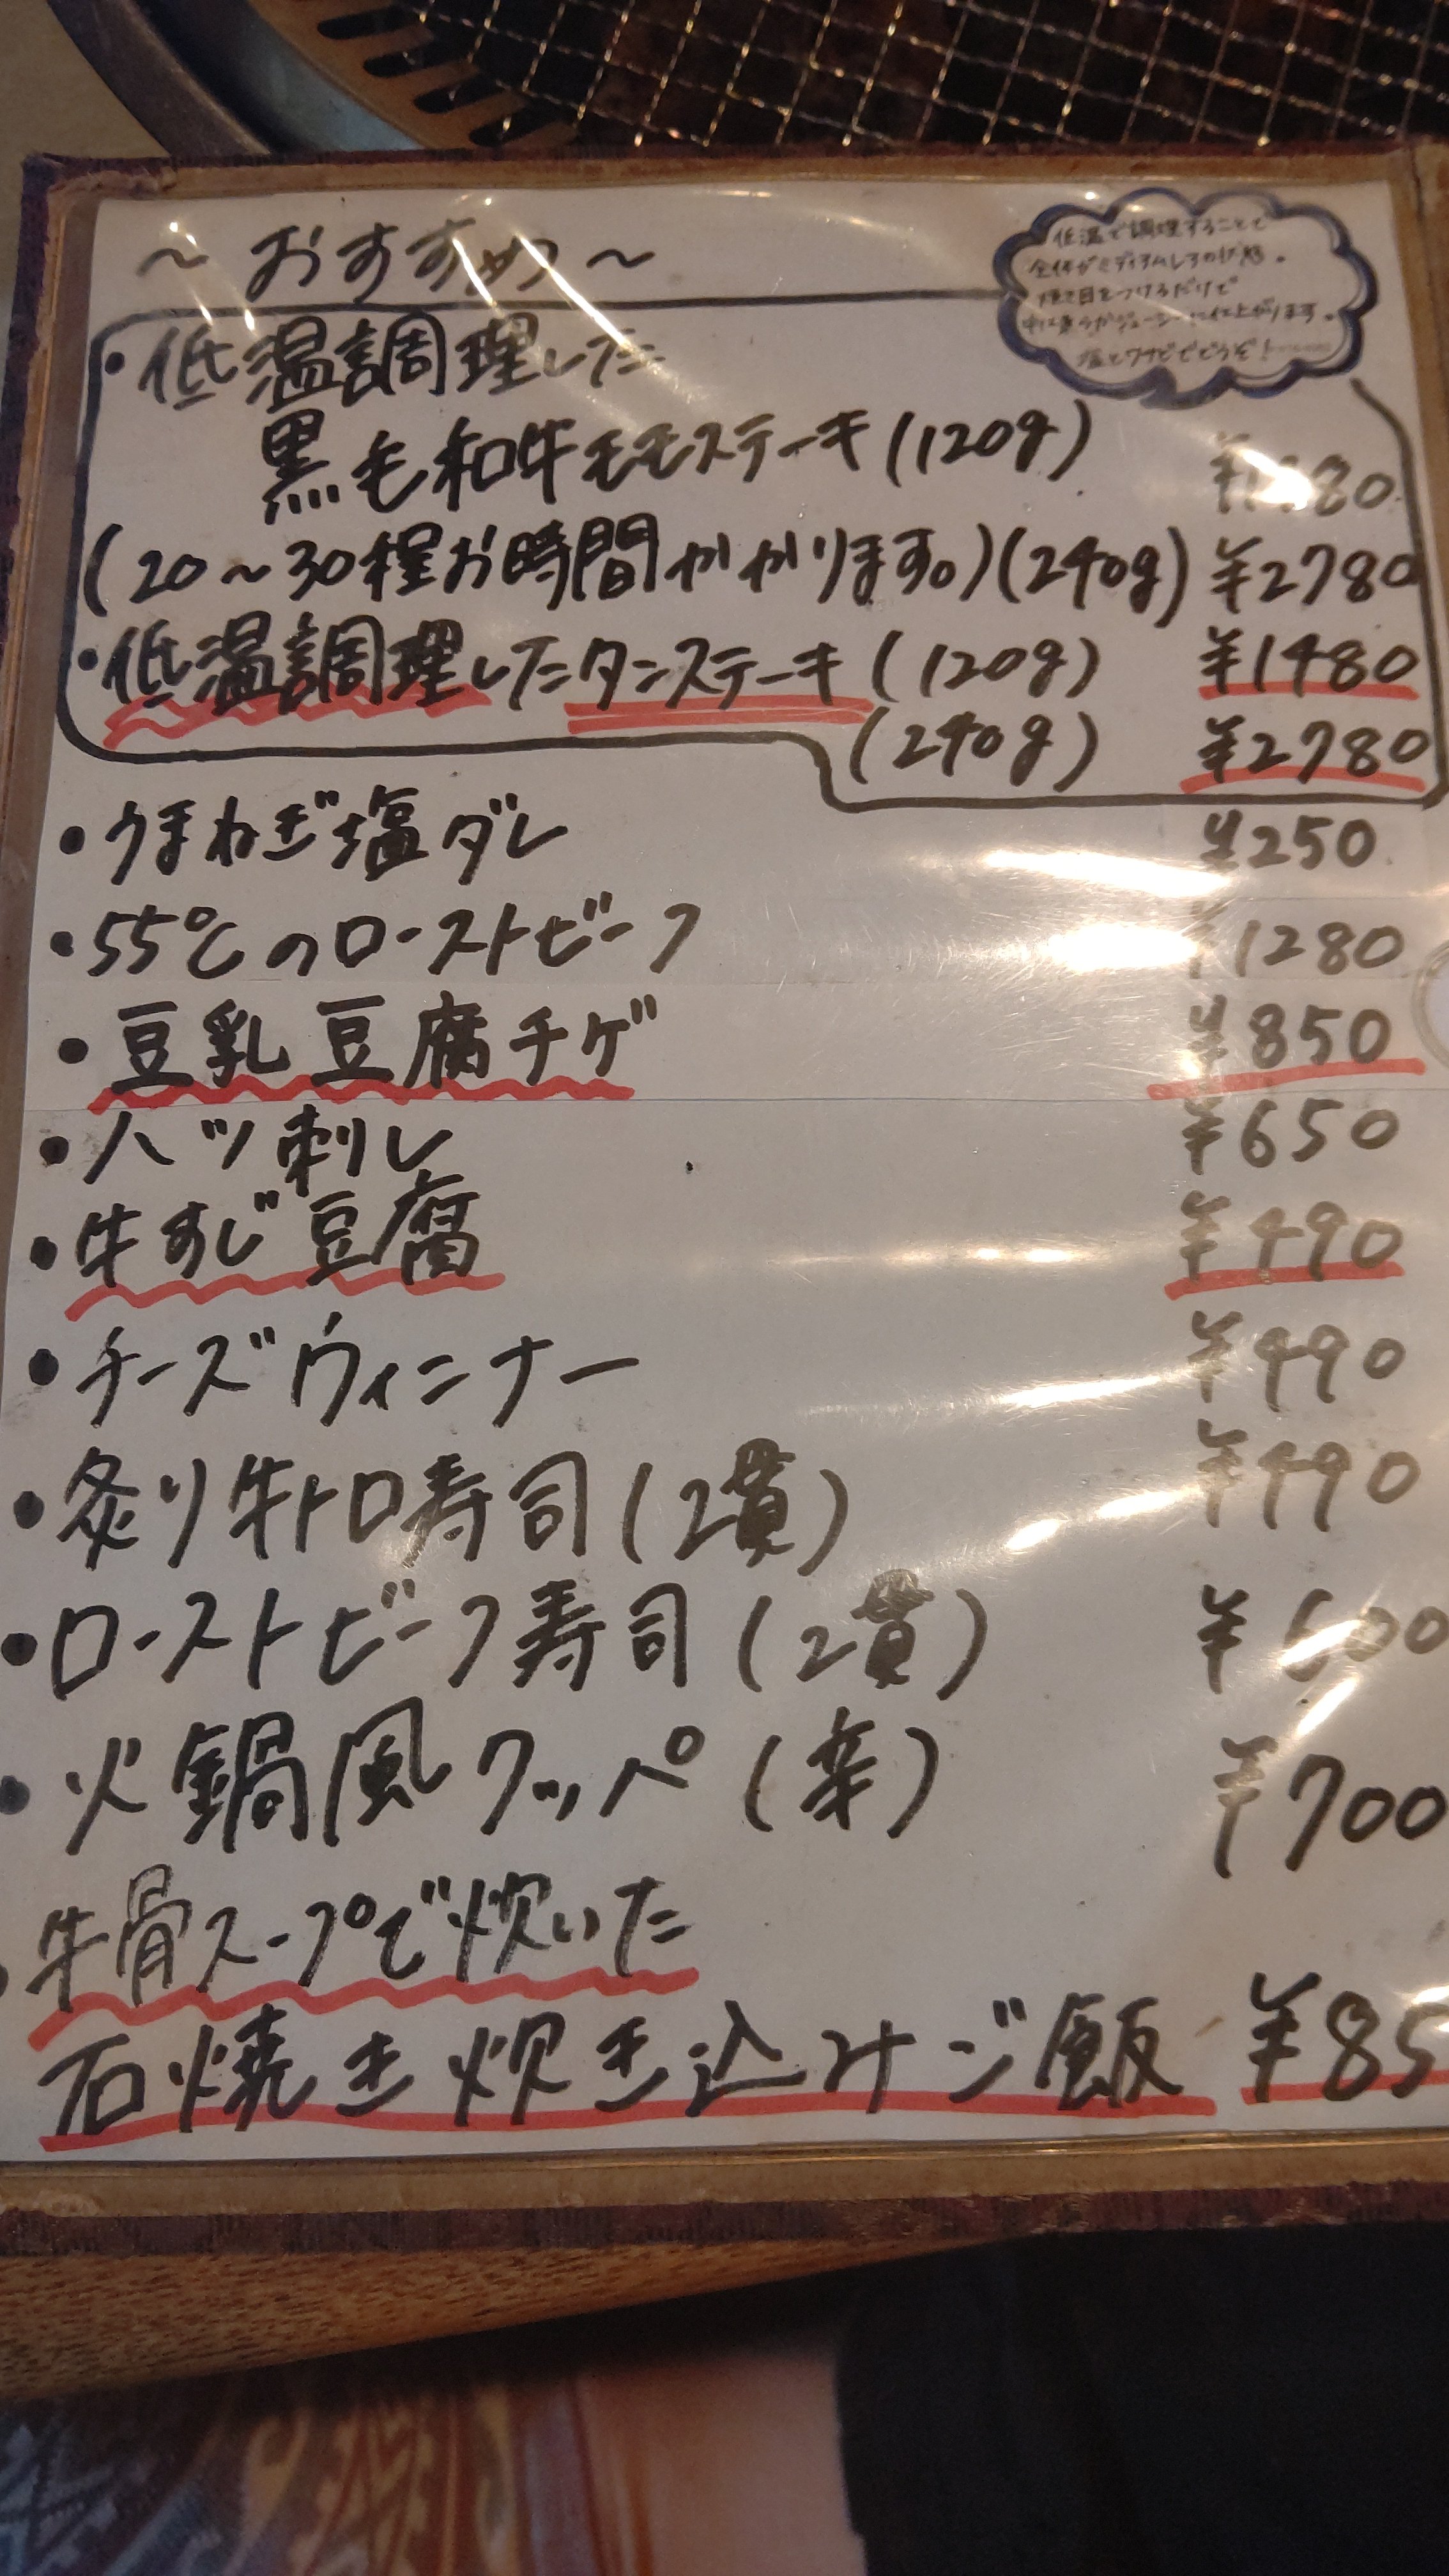 ～おすすめ～
低温で調理することで
全体がミディアムレアの状態。
焼き目をつけるだけで
中は柔らかジューシーに仕上がります。
塩とワサビでどうぞ！
・低温調理した
黒毛和牛モモステーキ(120g)
(20～30程お時間かかります。)(240g) ¥2780
・低温調理したタンステーキ(120g) ¥1480
(240g) ¥2780
・うまねぎ塩ダレ ¥250
・55℃のローストビーフ ¥1280
・豆乳豆腐チゲ ¥850
・ハツ刺し ¥650
・牛すじ豆腐 ¥490
・チーズウィンナー ¥490
・炙り牛トロ寿司(2貫) ¥490
・ローストビーフ寿司(2貫) ¥600
・火鍋風クッパ(辛) ¥700
・牛骨スープで炊いた
石焼き炊き込みご飯 ¥85